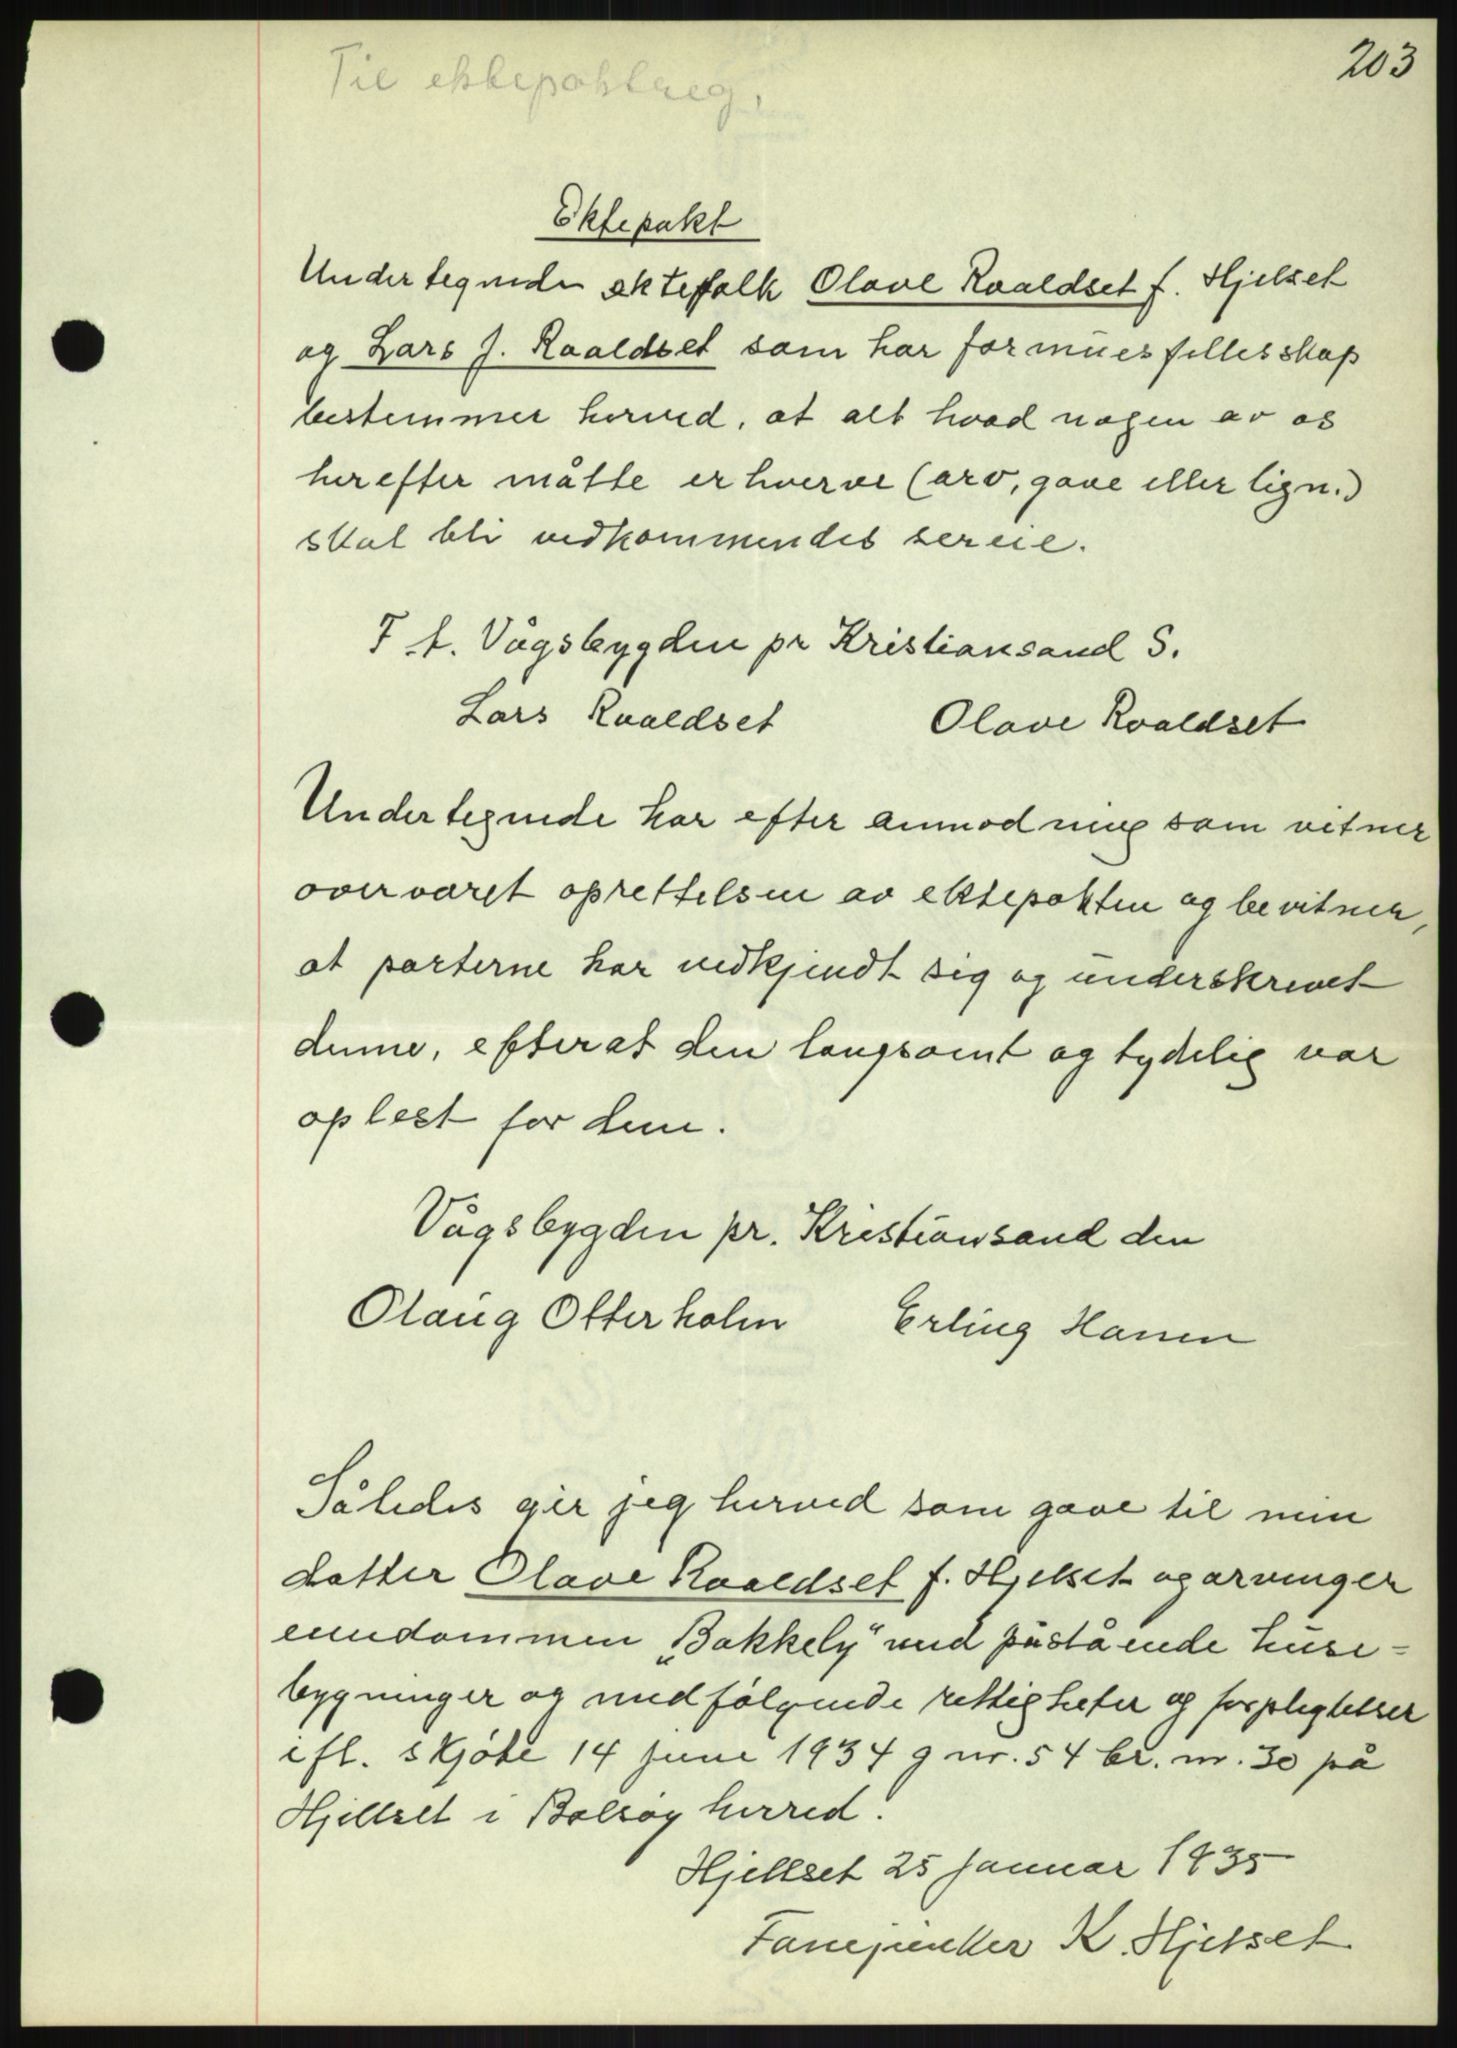 203
Til ektepaktreg.
Ektepakt
Undertegnede ektefolk Olave Roaldset f. Hjelset
og Lars J. Roaldset som har formuesfellesskap
bestemmer herved, at alt hvad nogen av os
herefter måtte erhverve (arv, gave eller lign.)
skal bli vedkommendes sereie.
F. t. Vågsbygden pr Kristiansand S.
Lars Roaldset Olave Roaldset
Undertegnede har efter anmodning som vitner
overværet oprettelsen av ektepakten og bevitner,
at parterne har vedkjendt sig og underskrevet
denne, efterat den langsomt og tydelig var
oplest for dem.
Vågsbygden pr. Kristiansand den
Olaug Otterholm Erling Hansen
Således gir jeg herved som gave til min
datter Olave Roaldset f. Hjelset og arvinger
eiendommen „Bakkely" med påstående huse-
bygninger og medfølgende rettigheter og forpligtelser
ifl. skjøte 14 juni 1934 g nr. 54 br. nr. 30 på
Hjellset i Bolsøy herred.
Hjellset 25 januar 1935
Fanejunker K. Hjelset